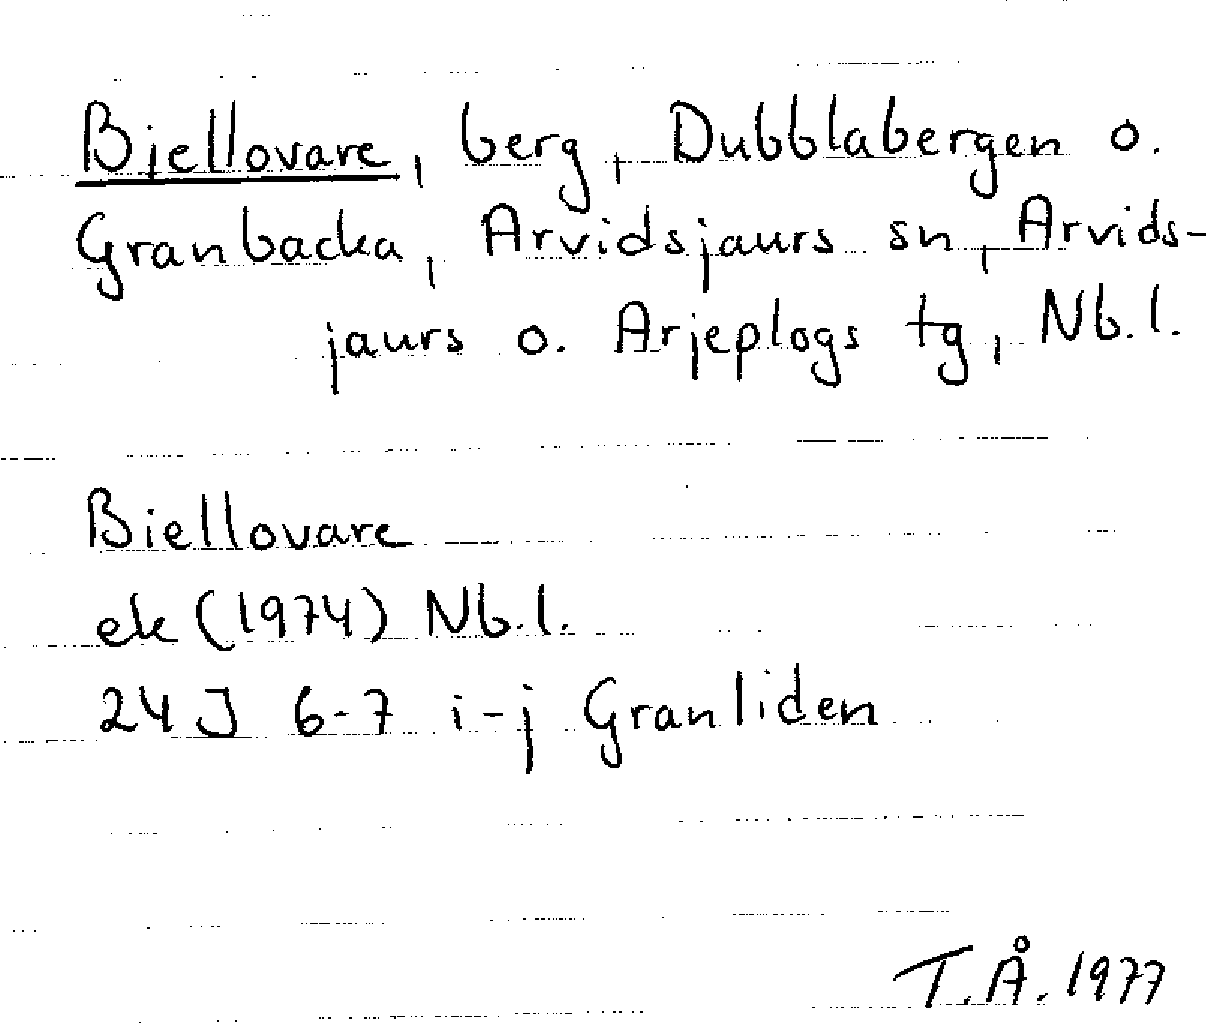 Biellovare, berg, Dubblabergen o.
Granbacka, Arvidsjaurs sn, Arvids-
jaurs o. Arjeplogs tg, Nb.l.
Biellovare
ek (1974) Nb.l.
24J 6-7 i-j Granliden
T.Å. 1977